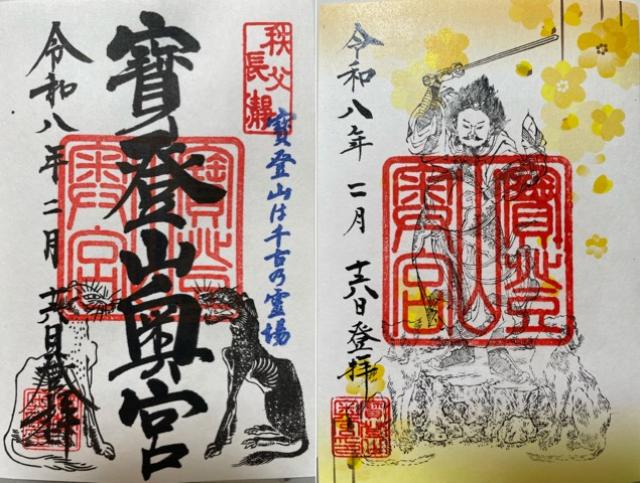 秩父
長瀞
寶登山は千古乃霊場
寶登山奥宮
令和八年二月十六日戴拝
寶登山奥宮
令和八年二月十六日登拝
寶登山奥宮